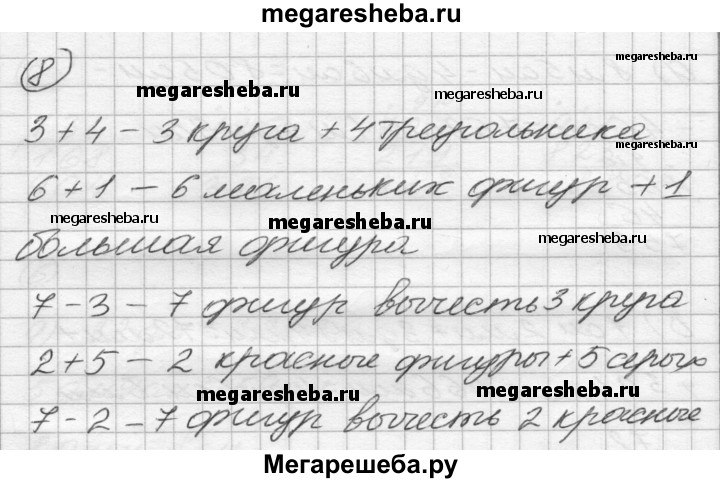 megaresheba.ru
8
megaresheba.ru
megaresheba.ru
3 + 4 – 3 круга + 4 треугольника
6 + 1 – 6 маленьких фигур + 1
megaresheba.ru
megaresheba.ru
megaresheba.ru
большая фигура
7 – 3 – 7 фигур вычесть 3 круга
2 + 5 – 2 красные фигуры + 5 серых
megaresheba.ru
megaresheba.ru
7 – 2 – 7 фигур вычесть 2 красные
Мегарешеба.ру